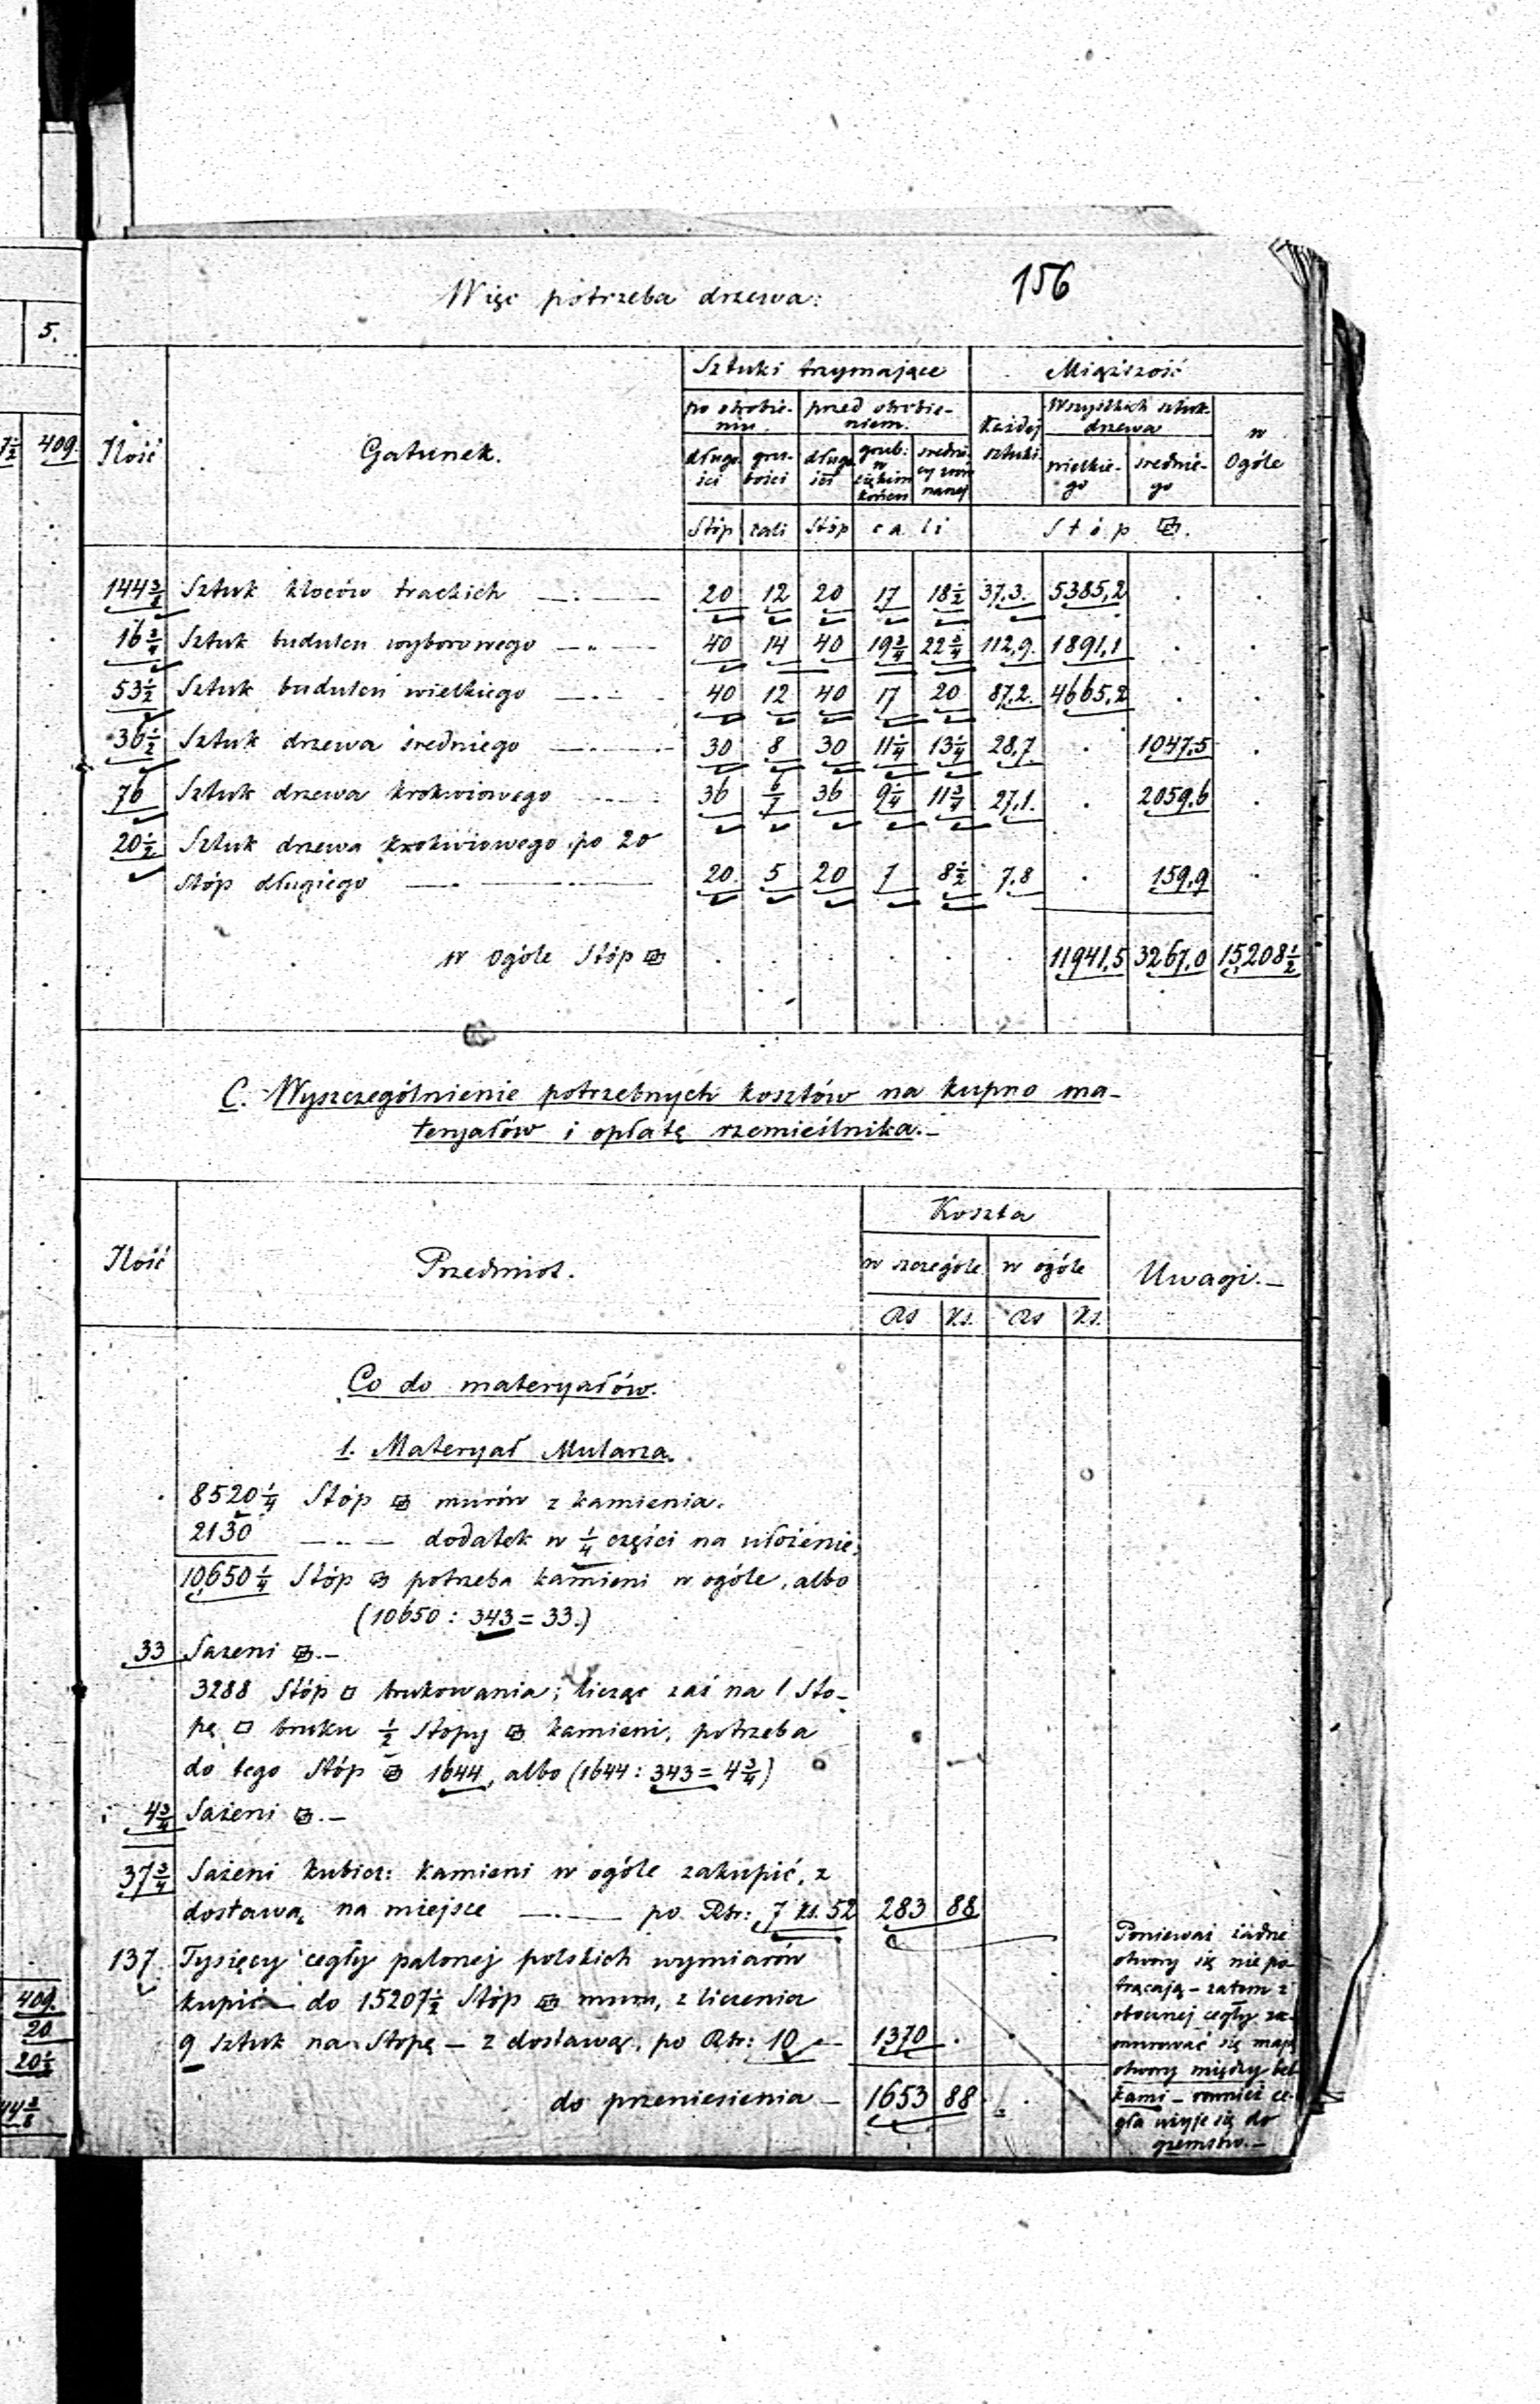 156
Więc potrzeba drzewa:
5.
409.
Ilość
Gatunek.
Sztuki trzymające
Miąższość
po obrobie-
niu.
przed obrobie-
niem.
Każdej
sztuki
Wszystkich sztuk
drzewa
w
Ogóle
długo-
ści
gru-
bości
długo-
ści
grub:
w
cięk̇im
końcu
średni-
cy
wielkie-
go
średnie-
go
Stóp cali Stóp cali Stóp ⌗.
144 3/8 Sztuk kloców trackich 20 12 20 17 18 1/2 37,3. 5385,2 . .
16 3/4 Sztuk budulcu wyborowego 40 14 40 19 3/4 22 3/4 112,9. 1891,1 . .
53 1/2 Sztuk budulcu wielkiego 40 12 40 17 20 87,2. 4665,2 . .
36 1/2 Sztuk drzewa średniego 30 8 30 11 1/4 13 1/4 28,7. . 1047,5 .
76 Sztuk drzewa krokwiowego 36 6/7 36 9 1/4 11 3/4 27,1. . 2059,6 .
20 1/2 Sztuk drzewa krokwiowego po 20
Stóp długiego 20 5 20 7 8 1/2 7,8 . 159,9 .
w ogóle Stóp ⌗ . . . . . . 11941,5 3267,0 15208 1/2
C. Wyszczególnienie potrzebnych kosztów na kupno ma-
teryałów i opłatę rzemieślnika.-
Ilość
Przedmiot.
Koszta
w szczególe w ogóle
Uwagi.-
Rs Ks. Rs Ks.
Co do materyałów.
1. Materyał Mularza.
8520 1/4 Stóp ⌗ murów z kamienia.
2130 —..— dodatek w 1/4 części na ułożenie,
10,650 1/4 Stóp ⌗ potrzeba kamieni w ogóle, albo
(10650 : 343 = 33.)
33 Sażeni ⌗.-
3288 Stóp □ brukowania; licząc zaś na 1 Sto-
pę □ bruku 1/2 Stopy ⌗ kamieni, potrzeba
do tego Stóp ⌗ 1644, albo (1644 : 343 = 4 3/4)
4 3/4 Sażeni ⌗.-
37 3/4 Sażeni kubicz: kamieni w ogóle zakupić, z
dostawą na miejsce —.— po Rbr: 7 ks. 52 283 88
137. Tysięcy cegły palonej polskich wymiarów
kupić - do 15207 1/2 Stóp ⌗ muru, z liczenia
9 Sztuk na Stopę - z dostawą, po Rbr: 10 - 1370 .
do przeniesienia - 1653 88
Ponieważ żadne
otwory się nie po-
trącają - zatem z
obocznej cegły za-
murować się mają
otwory między bel-
kami - również ce-
gła użyje się do
gzemsów.-
409.
20
20 1/2